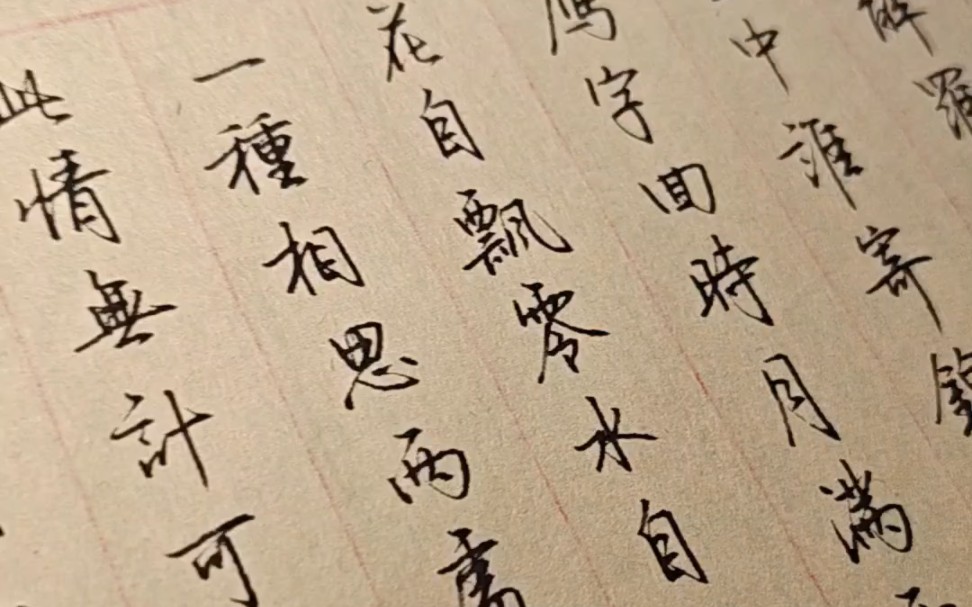 解羅
中誰寄
字回時月滿
花自飄零水自
一種相思兩處
此情無計可